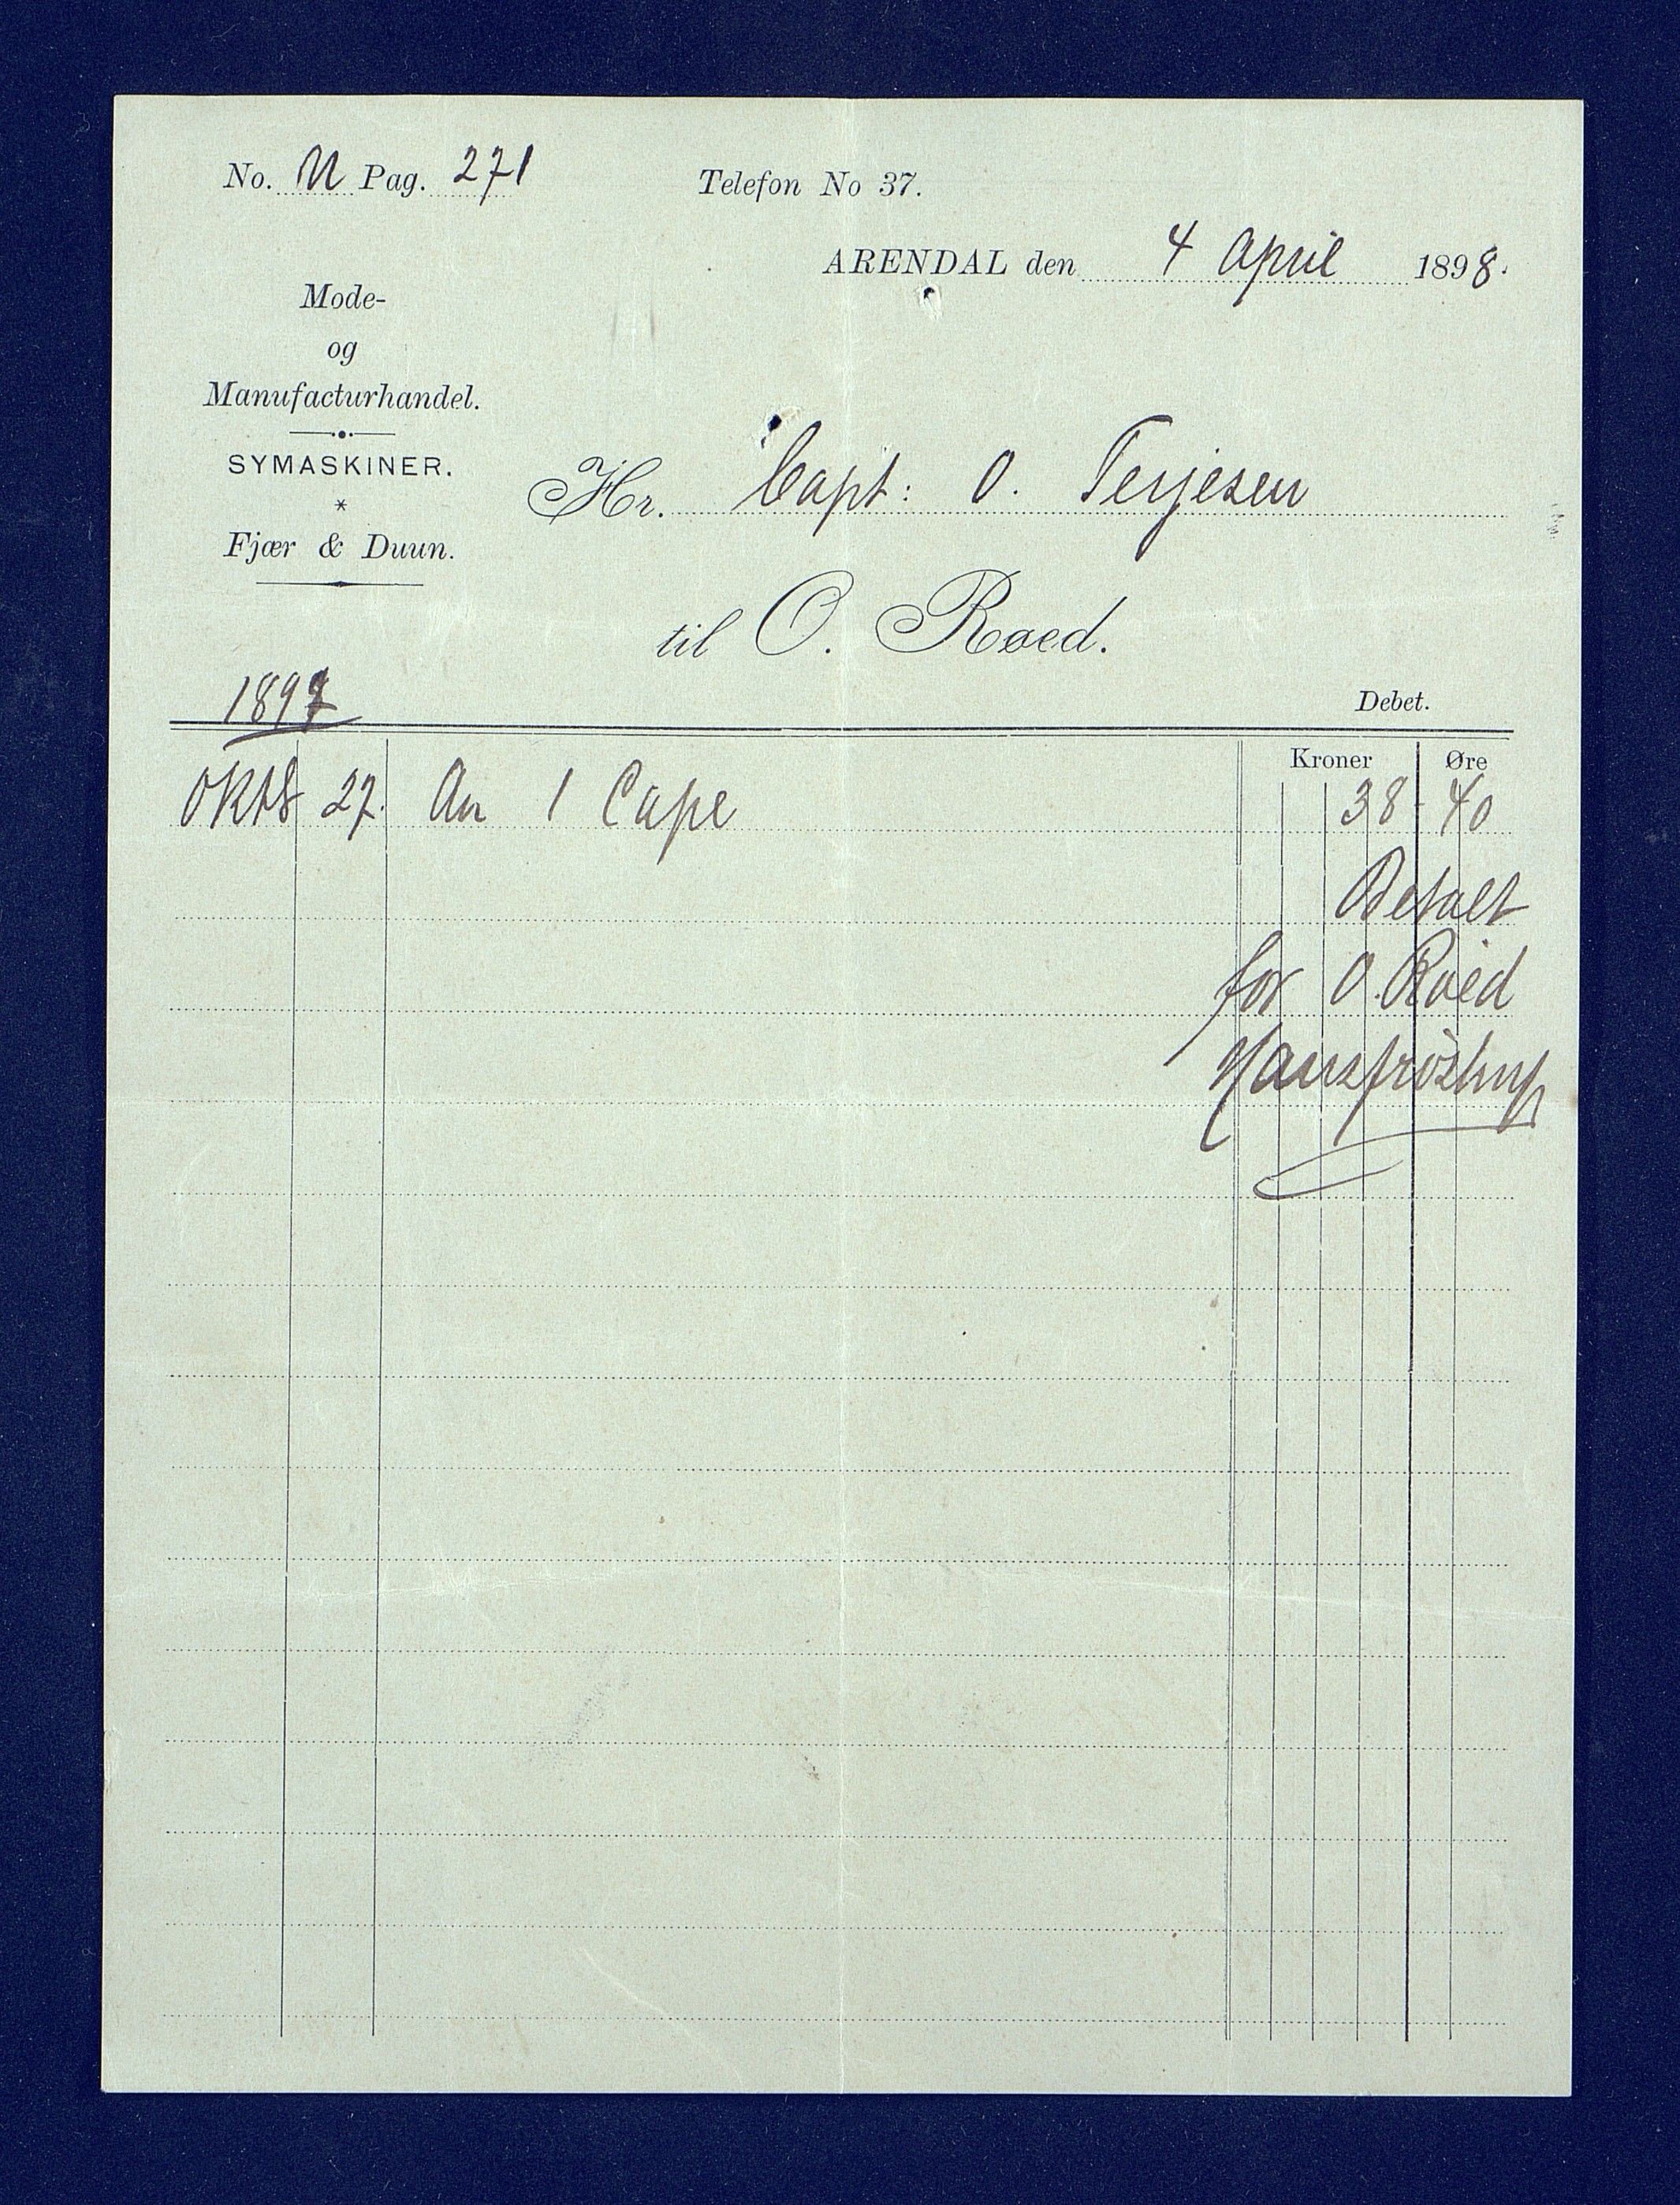 No. M Pag. 271
Telefon No 37.
ARENDAL den 4 April 1898.
Mode-
og
Manufacturhandel.
SYMASKINER.
*
Fjær & Duun.
Hr. Capt: O. Terjesen
til O. Røed.
1897
Debet.
Kroner Øre
Oktb 27. An 1 Cape 38-40
Betalt
for O. Røed